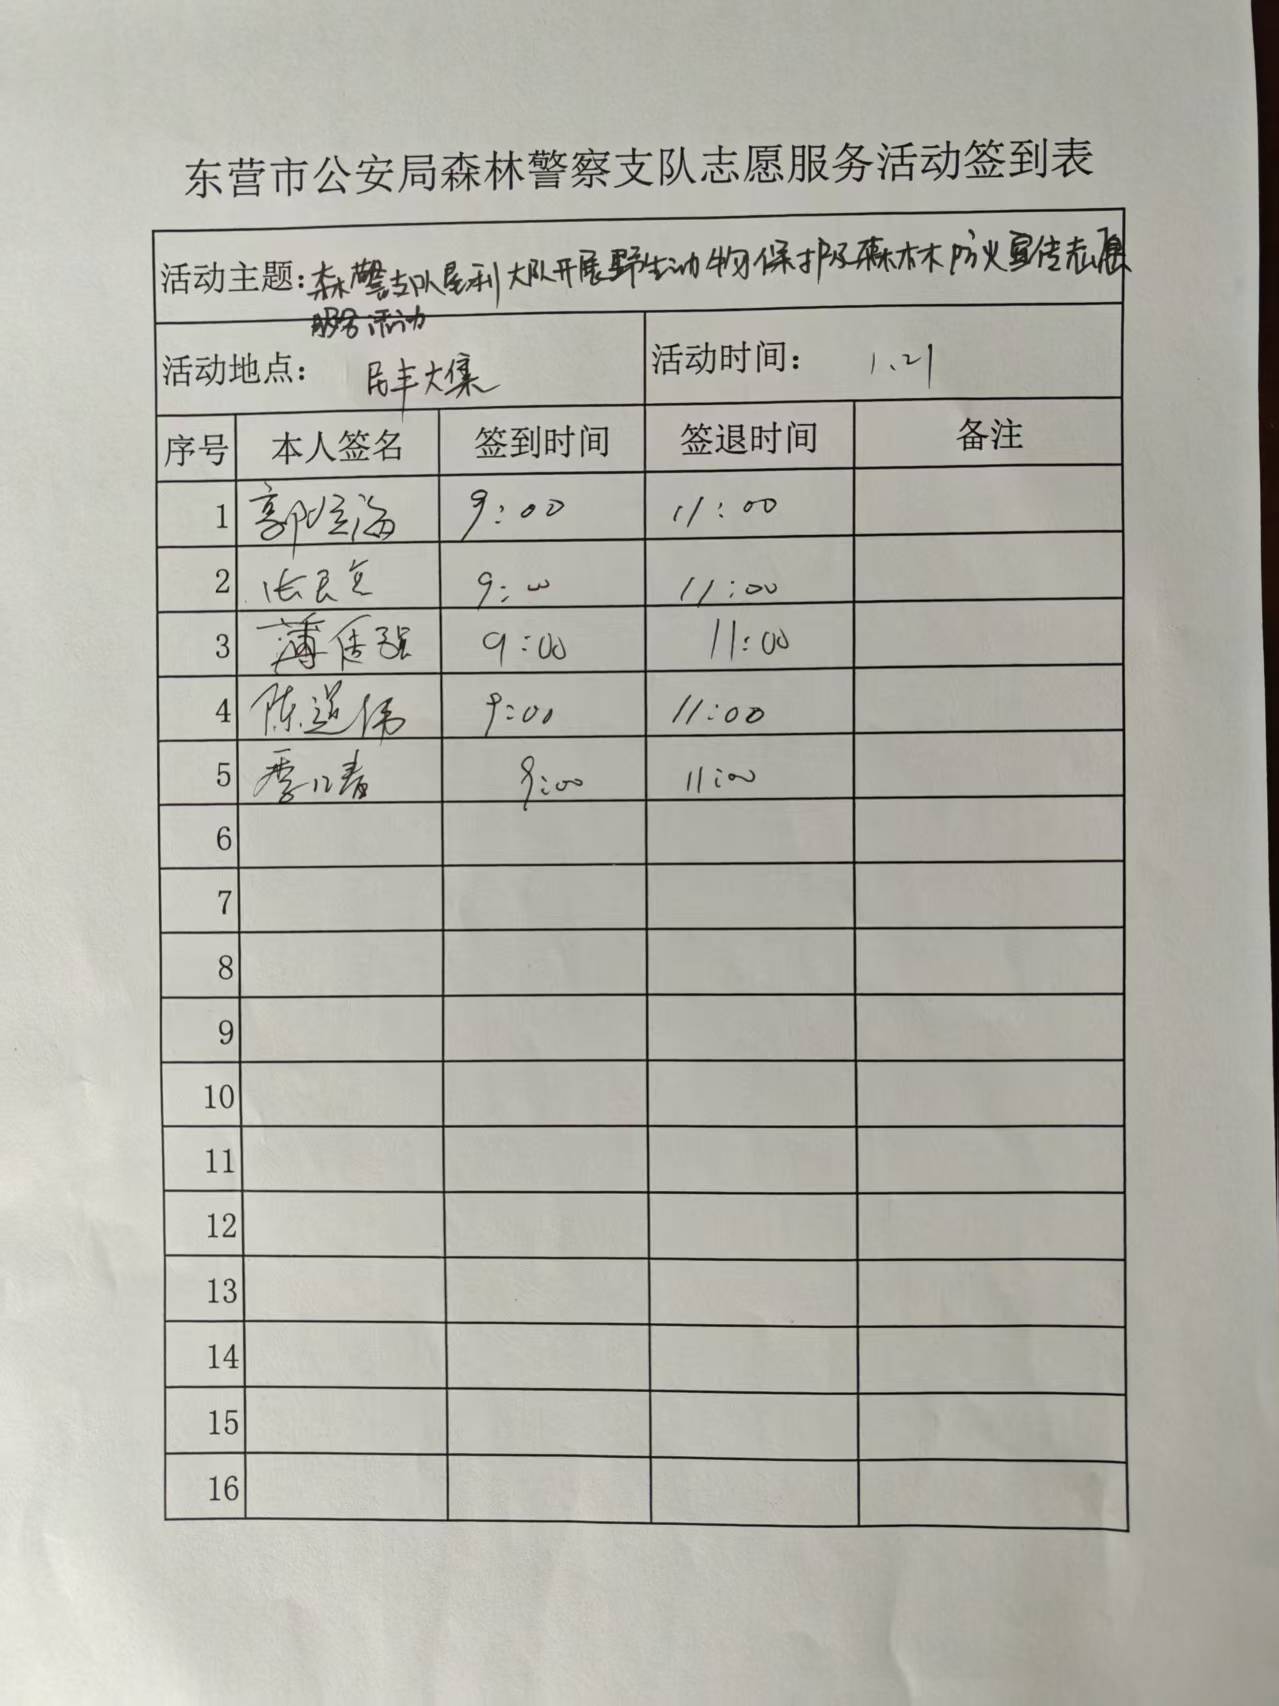 东营市公安局森林警察支队志愿服务活动签到表
活动主题：森警支队垦利大队开展野生动物保护及森林防火宣传志愿
服务活动
活动地点： 民丰大集 活动时间： 1.21
序号 本人签名 签到时间 签退时间 备注
1 郭 海 9:00 11:00
2 张民 9:00 11:00
3 薄 强 9:00 11:00
4 陈道伟 9:00 11:00
5 春 9:00 11:00
6
7
8
9
10
11
12
13
14
15
16